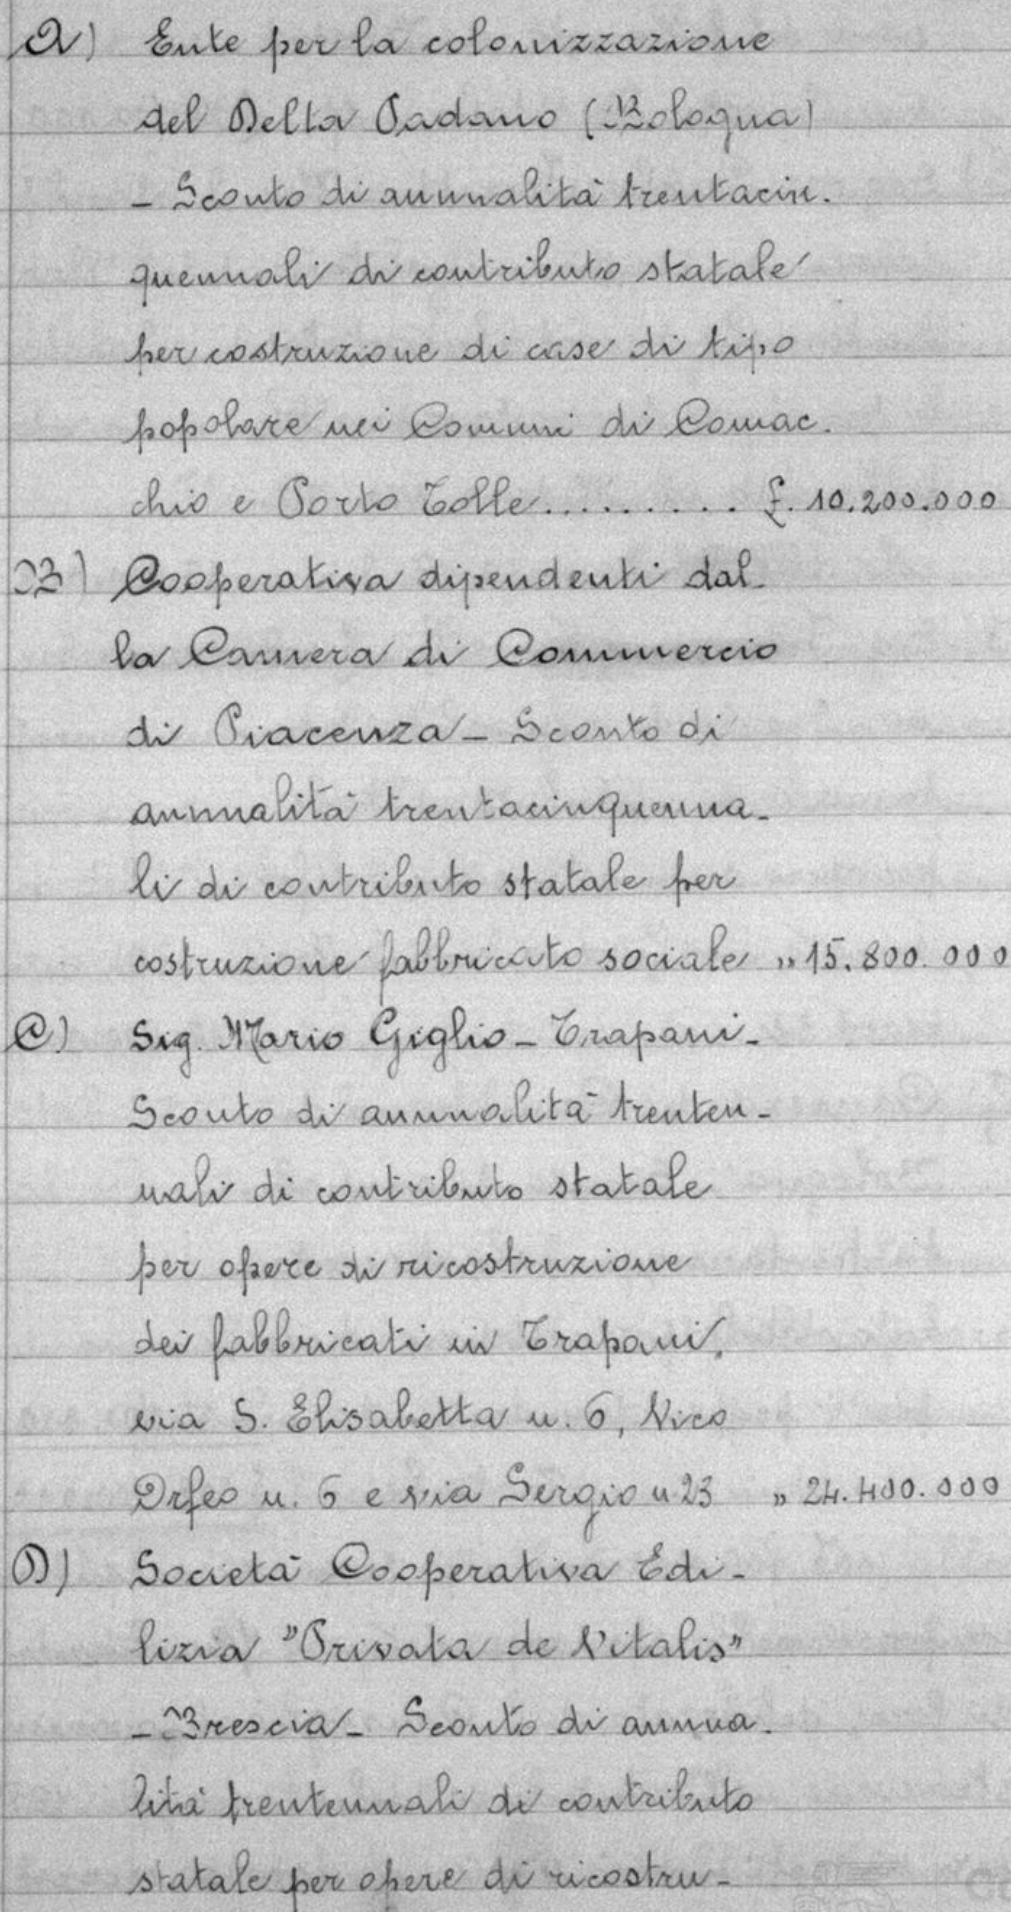 A) Ente per la colonizzazione
del Delta Padano (Bologna)
- Sconto di annualità trentacin-
quennali di contributo statale
per costruzione di case di tipo
popolare nei Comuni di Comac-
chio e Porto Tolle.......... £. 10.200.000
B) Cooperativa dipendenti dal-
la Camera di Commercio
di Piacenza - Sconto di
annualità trentacinquenna-
li di contributo statale per
costruzione fabbricato sociale " 15.800.000
C) Sig. Mario Giglio - Trapani -
Sconto di annualità trenten-
nali di contributo statale
per opere di ricostruzione
dei fabbricati in Trapani,
via S. Elisabetta n. 6, Vico
Orfeo n. 6 e via Sergio n 23 " 24.400.000
D) Società Cooperativa Edi-
lizia "Privata de Vitalis"
- Brescia - Sconto di annua-
lità trentennali di contributo
statale per opere di ricostru-